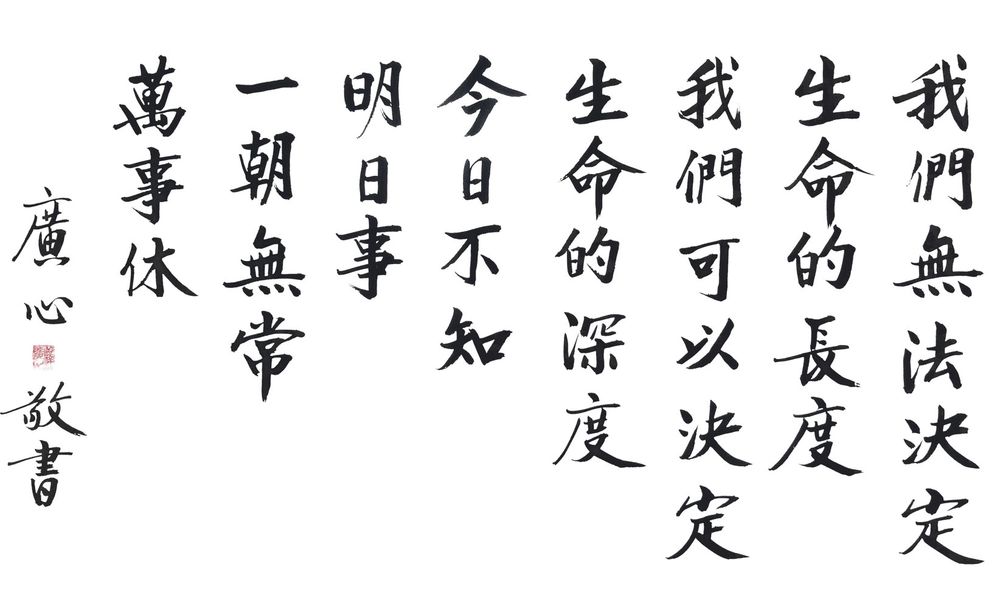 我們無法決定
生命的長度
我們可以決定
生命的深度
今日不知
明日事
一朝無常
萬事休
廣心
敬書